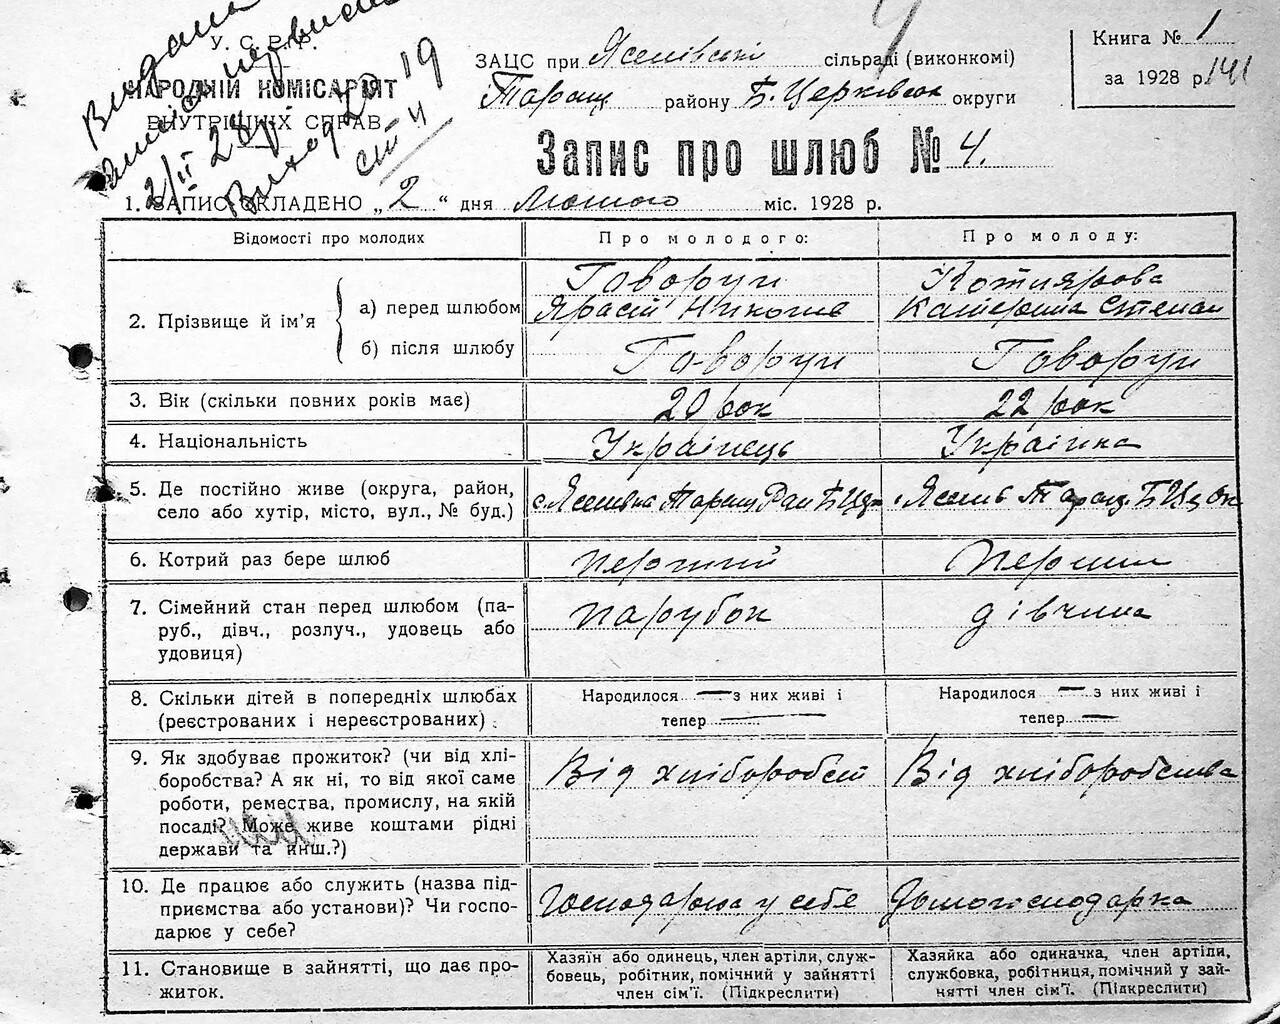 У. С. Р. Р.
НАРОДНІЙ КОМІСАРІЯТ
ВНУТРІШНІХ СПРАВ
Видана
2/II 28 р
ЗАЦС при Ясенівські сільраді (виконкомі)
Таращ району Б. Церківськ округи
Книга № 1
за 1928 р. 141
Запис про шлюб № 4.
1. ЗАПИС СКЛАДЕНО „2“ дня Лютого міс. 1928 р.
Відомості про молодих
Про молодого:
Про молоду:
2. Прізвище й ім'я
а) перед шлюбом
б) після шлюбу
Говорун
Говорун
Котлярова
Катерина Степан
Говорун
3. Вік (скільки повних років має)
20 рок
22 рок
4. Національність
Українець
Українка
5. Де постійно живе (округа, район,
село або хутір, місто, вул., № буд.)
6. Котрий раз бере шлюб
перший
Перший
7. Сімейний стан перед шлюбом (па-
руб., дівч., розлуч., удовець або
удовиця)
парубок
дівчина
8. Скільки дітей в попередніх шлюбах
(реєстрованих і нереєстрованих)
Народилося — з них живі і
тепер —
Народилося — з них живі і
тепер —
9. Як здобуває прожиток? (чи від хлі-
боробства? А як ні, то від якої саме
роботи, ремества, промислу, на якій
посаді? Може живе коштами рідні
держави та инш.?)
Від хліборобст
Від хліборобства
10. Де працює або служить (назва під-
приємства або установи)? Чи госпо-
дарює у себе?
у себе
Домогосподарка
11. Становище в зайнятті, що дає про-
житок.
Хазяїн або одинець, член артіли, служ-
бовець, робітник, помічний у зайнятті
член сім'ї. (Підкреслити)
Хазяйка або одиначка, член артіли,
службовка, робітниця, помічний у зай-
нятті член сім'ї. (Підкреслити)